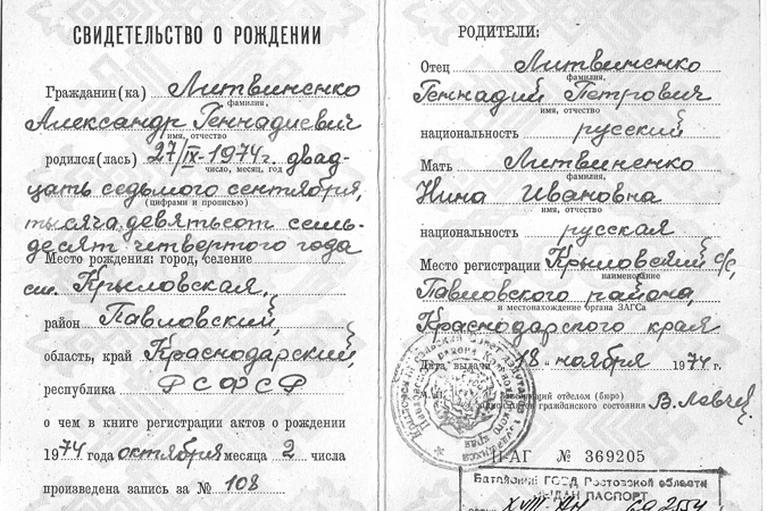 СВИДЕТЕЛЬСТВО О РОЖДЕНИИ
Гражданин(ка) Литвиненко
фамилия,
Александр Геннадиевич
имя, отчество
родился(лась) 27/IX-1974г. двад-
число, месяц, год
цать седьмого сентября,
(цифрами и прописью)
тысяча девятьсот семь-
десят четвертого года
Место рождения: город, селение
ст. Крыловская,
район Павловский,
область, край Краснодарский,
республика РСФСР
о чем в книге регистрации актов о рождении
1974 года октября месяца 2 числа
произведена запись за № 108
РОДИТЕЛИ:
Отец Литвиненко
фамилия,
Геннадий Петрович
имя, отчество
национальность русский
Мать Литвиненко
фамилия,
Нина Ивановна
имя, отчество
национальность русская
Место регистрации Крыловский с/с,
наименование
Павловского района,
и местонахождение органа ЗАГСа
Краснодарского края
Дата выдачи 18 ноября 1974 г.
М. П. отделом (бюро)
гражданского состояния
-АГ № 369205
Батайский ГОВД Ростовской области
ПАСПОРТ
XVIII-АН